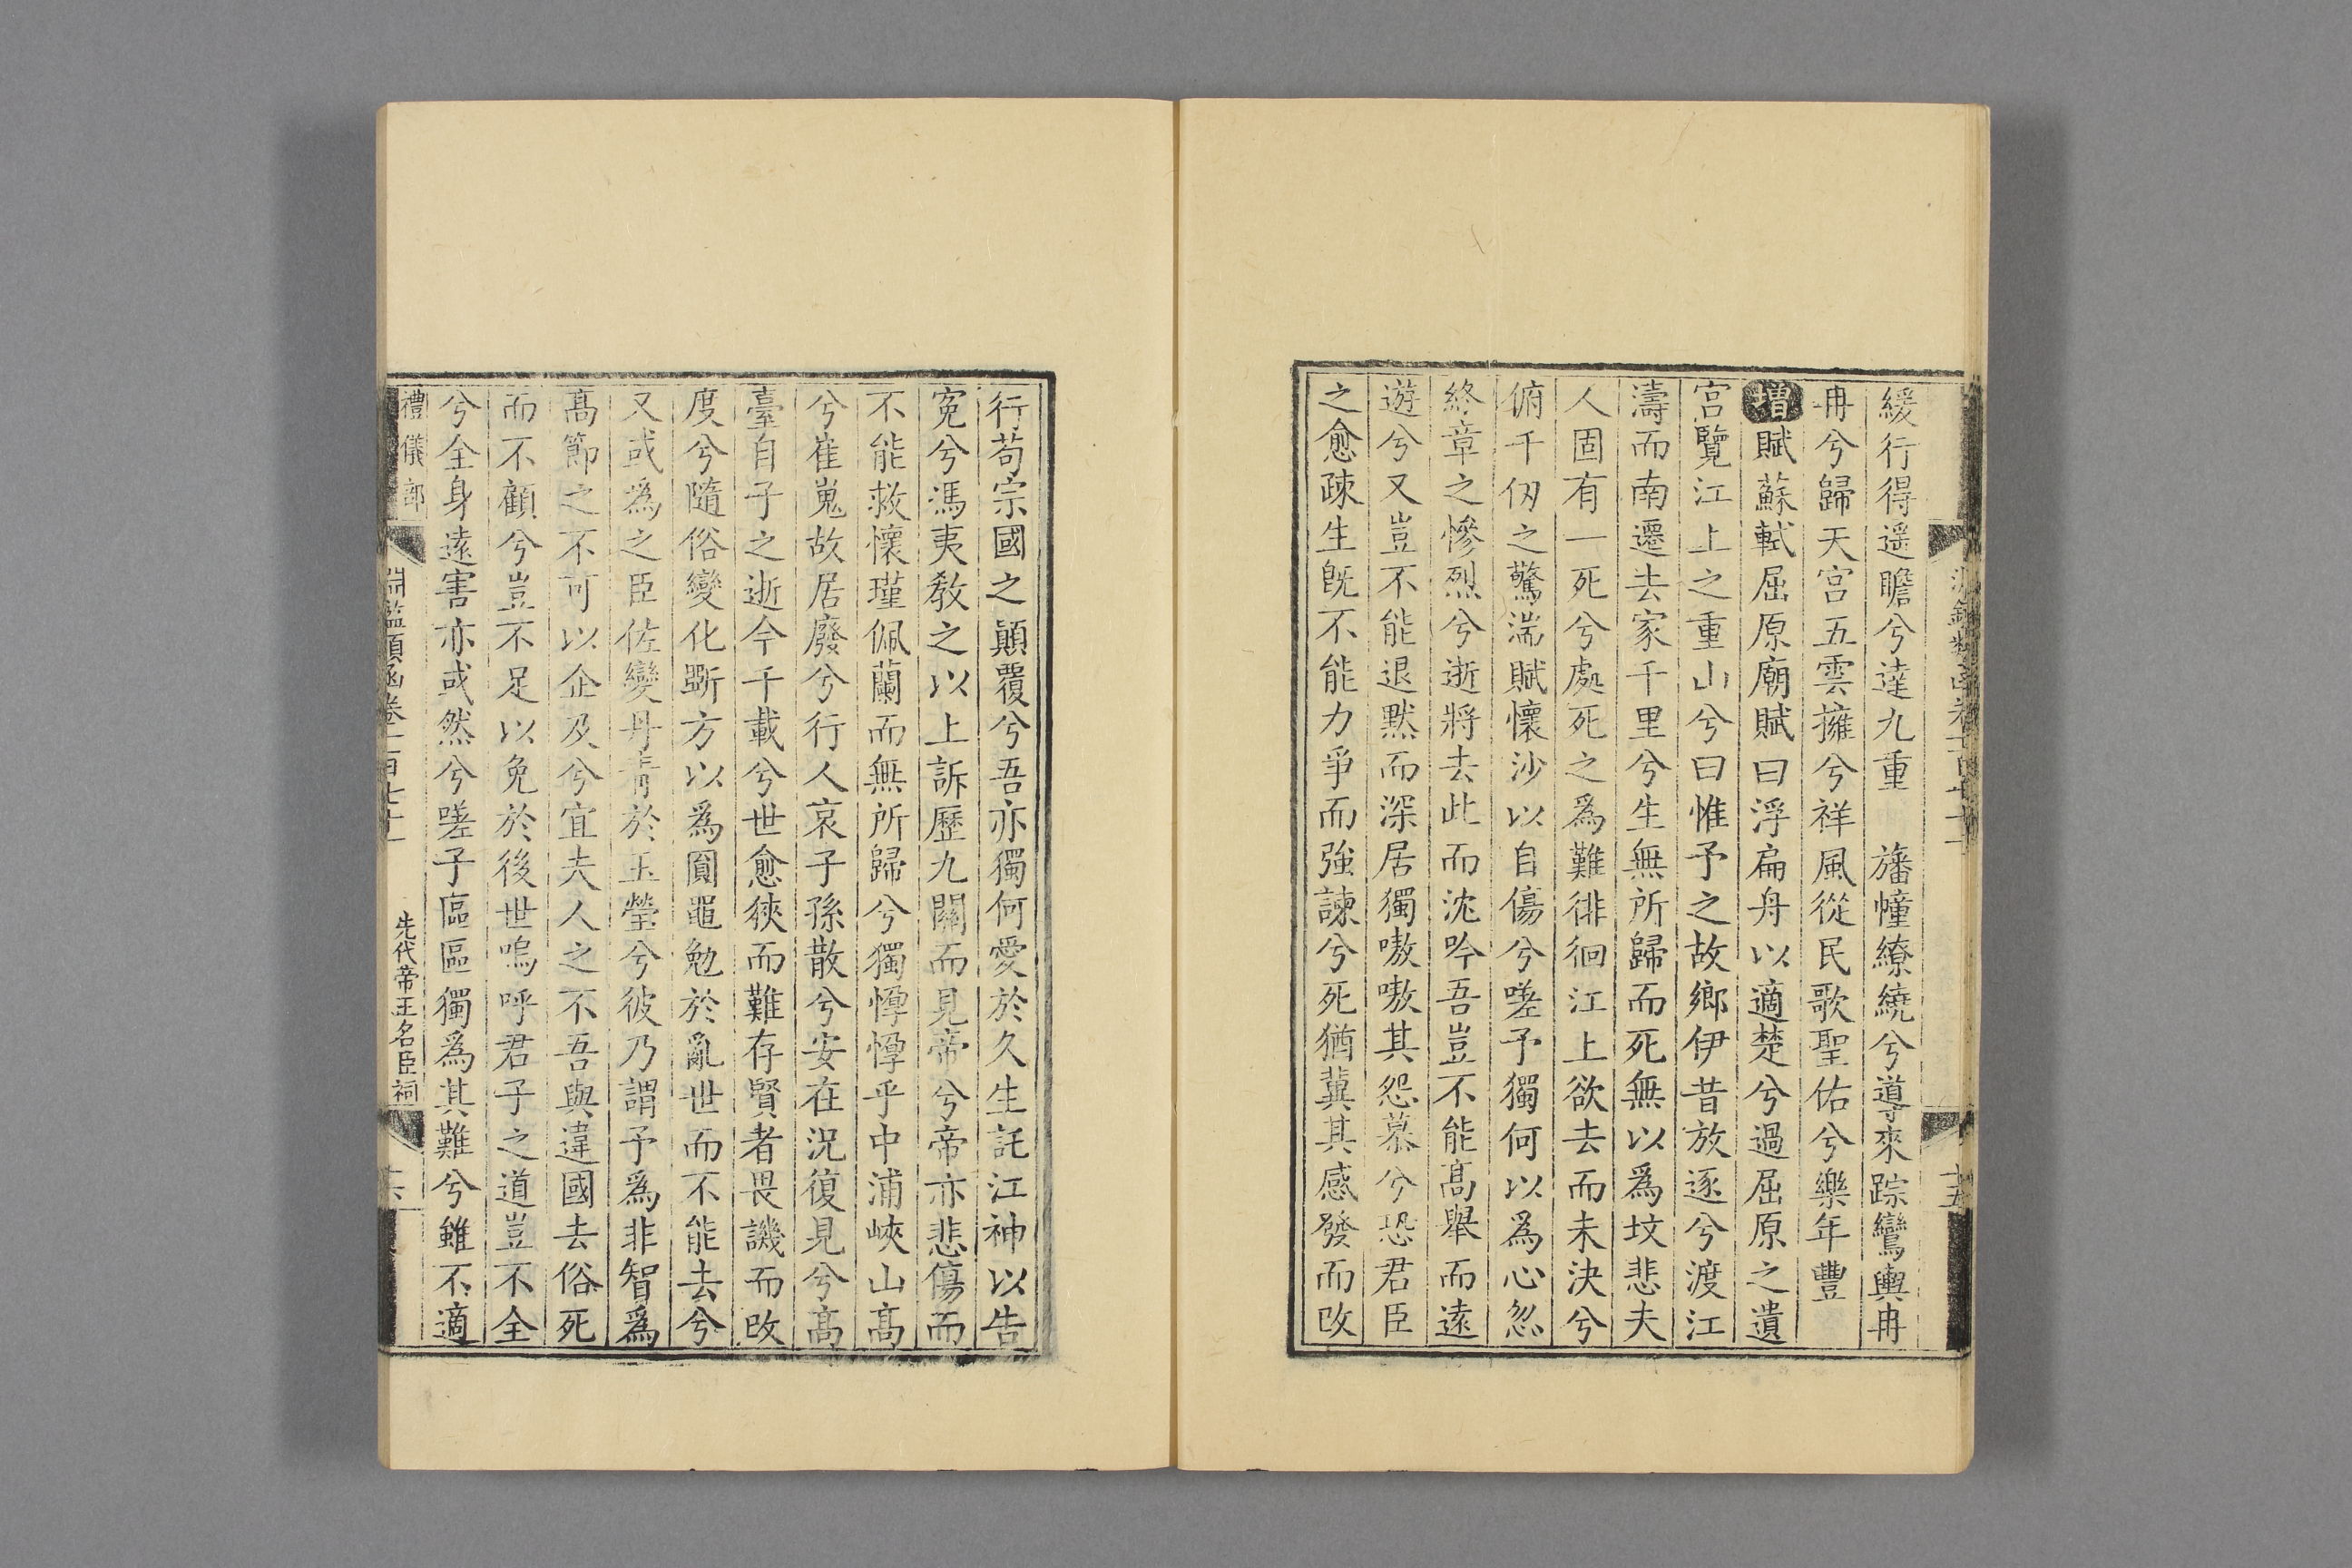 緩行得遥瞻兮達九重　旛幢繚繞兮導來踪鸞輿冉
冉兮歸天宫五雲擁兮祥風從民歌聖佑兮樂年豐
增賦蘇軾屈原廟賦曰浮扁舟以適楚兮過屈原之遺
宫覽江上之重山兮曰惟予之故鄉伊昔放逐兮渡江
濤而南遷去家千里兮生無所歸而死無以爲墳悲夫
人固有一死兮處死之爲難徘徊江上欲去而未決兮
俯千仞之驚湍賦懷沙以自傷兮嗟予獨何以爲心忽
終章之慘烈兮逝將去此而沈吟吾豈不能髙舉而遠
遊兮又豈不能退默而深居獨嗷嗷其怨慕兮恐君臣
之愈疎生旣不能力爭而強諫兮死猶冀其感發而改
十五
行苟宗國之顛覆兮吾亦獨何愛於久生託江神以告
寃兮馮夷敎之以上訴歷九關而見帝兮帝亦悲傷而
不能救懷瑾佩蘭而無所歸兮獨惸惸乎中浦峽山髙
兮崔嵬故居廢兮行人哀子孫散兮安在況復見兮髙
臺自子之逝今千載兮世愈狹而難存賢者畏譏而改
度兮隨俗變化斲方以爲圓黽勉於亂世而不能去兮
又或爲之臣佐變丹青於玉瑩兮彼乃謂予爲非智爲
髙節之不可以企及兮宜夫人之不吾與違國去俗死
而不顧兮豈不足以免於後世嗚呼君子之道豈不全
兮全身遠害亦或然兮嗟子區區獨爲其難兮雖不適
禮儀部　淵鑑類函卷一百七十一　先代帝王名臣祠